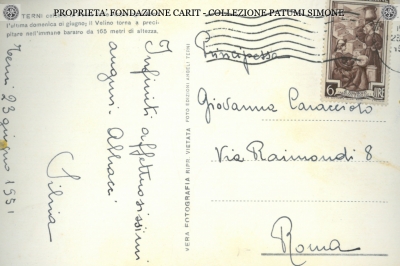 PROPRIETA' FONDAZIONE CARIT - COLLEZIONE PATUMI SIMONE
TERNI
l'ultima domenica di giugno; il Velino torna a preci-
pitare nell'immane baratro da 165 metri di altezza.
Terni 23 giugno 1951
Infiniti affettuosissimi
auguri. Abbracci
Silvia
VERA FOTOGRAFIA RIPR. VIETATA FOTO EDIZIONI ANGELI TERNI
6
LIRE
Principessa
Giovanna Caracciolo
Via Raimondi 8
Roma